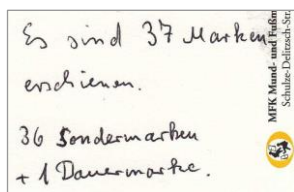 Es sind 37 Marken
erschienen.
36 Sondermarken
+ 1 Dauermarke.
MFK Mund- und Fußm
Schulze-Delitzsch-Str.